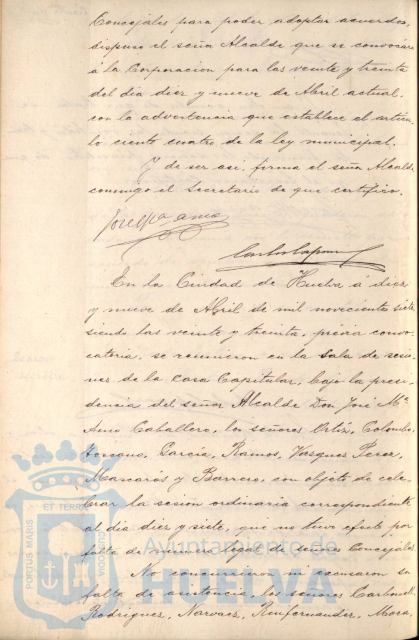 Concejales para poder adoptar acuerdos,
dispuso el señor Alcalde que se convocára
á la Corporacion para las veinte y treinta
del dia diez y nueve de Abril actual,
con la advertencia que establece el articu-
lo ciento cuatro de la ley municipal.
Y de ser asi, firma el señor Alcalde
conmigo el Secretario de que certifico.
En la Ciudad de Huelva á diez
y nueve de Abril de mil novecientos siete
siendo las veinte y treinta, prévia convo-
catoria, se reunieron en la Sala de sesio-
nes de la casa Capitular, bajo la presi-
dencia del señor Alcalde Don José Mª
Amo Caballero, los señores Ortiz, Colombo,
Toscano, Garcia, Ramos, Vasquez Perez,
Mascarós y Barrero, con objeto de cele-
brar la sesion ordinaria correspondiente
al dia diez y siete, que no tuvo efecto por
falta de número legal de señores Concejales
No concurrieron ni excusaron su
falta de asistencia, los señores
Rodriguez, Narvaez, Mora,
PORTUS MARIS ET TERRAE CUSTODIA
Ayuntamiento de
HUELVA